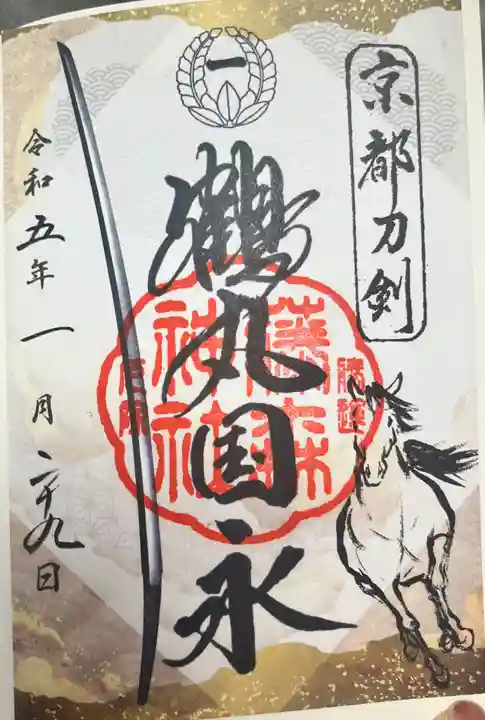 京都刀剣
一
鶴丸国永
藤森
神社
勝運
令和五年一月二十九日